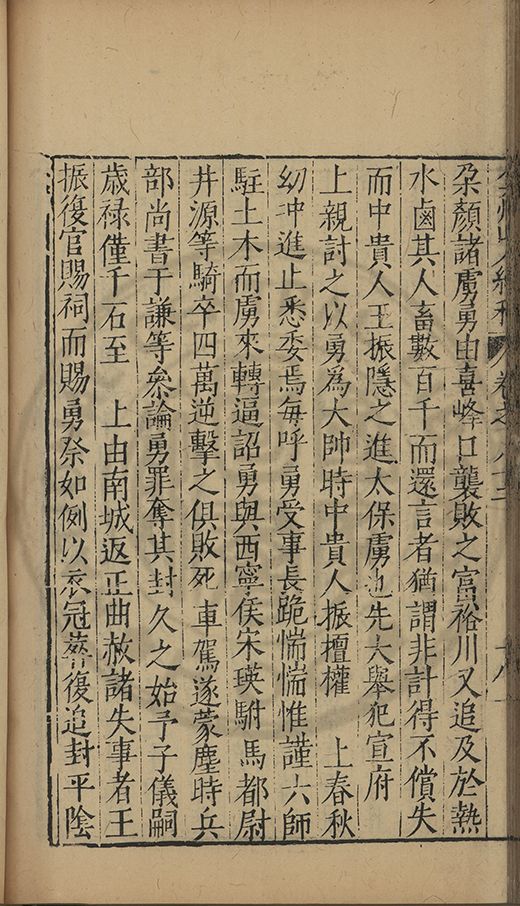 朶顏諸虜勇由喜峰口襲敗之富裕川又追及於熱
水鹵其人畜數百千而還言者猶謂非計得不償失
而中貴人王振隱之進太保虜也先大舉犯宣府
上親討之以勇為大帥時中貴人振擅權　上春秋
幼冲進止悉委焉每呼勇受事長跪惴惴惟謹六師
駐土木而虜來轉逼詔勇與西寧侯宋瑛駙馬都尉
井源等騎卒四萬逆擊之俱敗死　車駕遂蒙塵時兵
部尚書于謙等叅論勇罪奪其封久之始予子儀嗣
歲祿僅千石至　上由南城返正曲赦諸失事者王
振復官賜祠而賜勇祭如例以衣冠葬復追封平陰